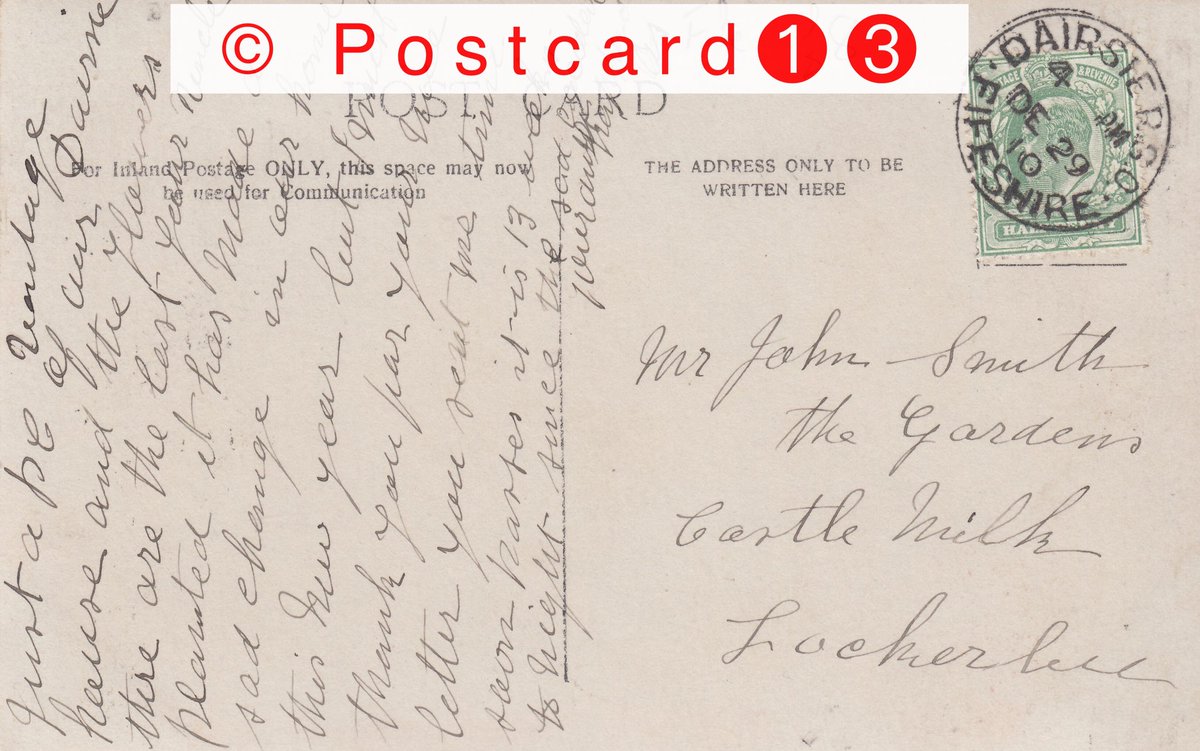 © Postcard 13
POST CARD
For Inland Postage ONLY, this space may now
be used for Communication
THE ADDRESS ONLY TO BE
WRITTEN HERE
DAIRSIE R.S.O.
4 PM
DE 29
10
FIFESHIRE
POSTAGE & REVENUE
HALFPENNY
Just a p c of our
house and the flowers
there are the last
planted it has made a
sad change in our home
this New year but
thank you for your
letter you sent me
soon passes it is 13
to night since the sad
Mr John Smith
the Gardens
Castle Milk
Lockerbie